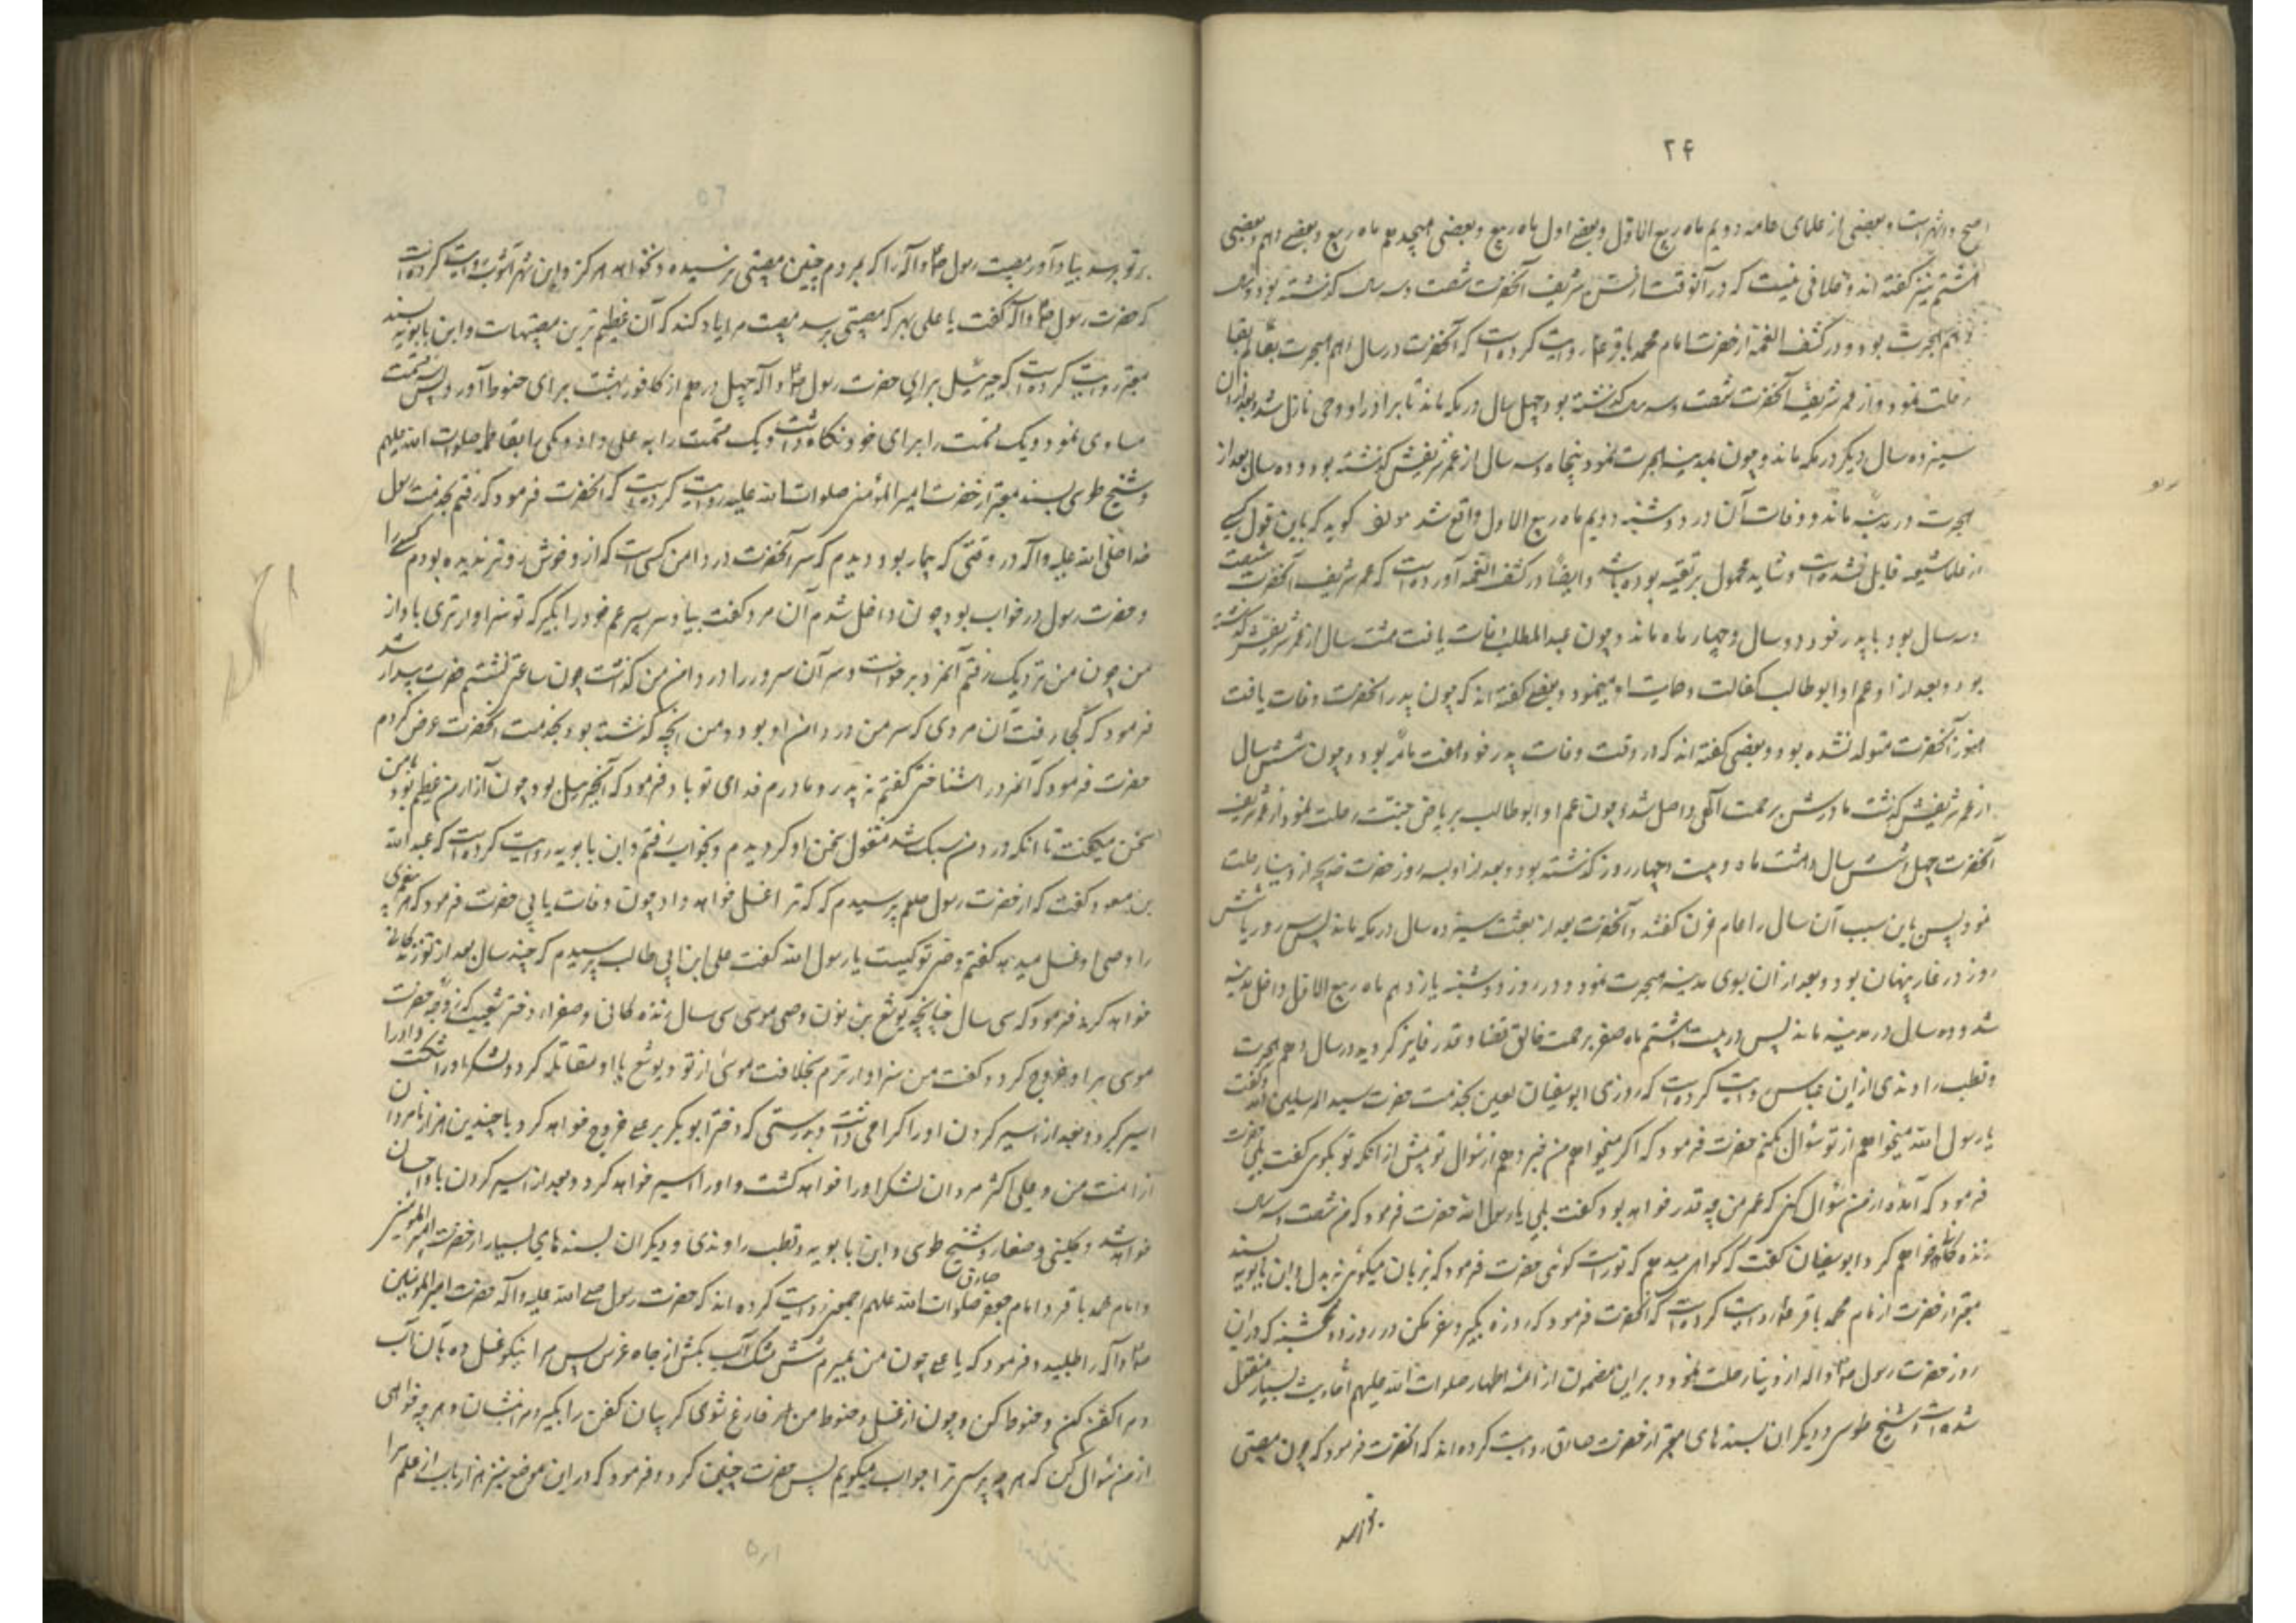 ۲۴
اصح و اشهر است و بعضی از علمای عامه دویم ماه ربیع الاول و بعضے اول ماه ربیع و بعضی هیجدهم ماه ربیع و بعضے دهم و بعضی
هشتم نیز گفته اند و خلافی نیست که در آنوقت از سن شریف آنحضرت شصت و سه سال گذشته بود و سال
دهم هجرت بود و در کشف الغمه از حضرت امام محمد باقر ع روایت کرده است که آنحضرت در سال دهم هجرت بعالم بقا
رحلت نمود و از عمر شریف آنحضرت شصت و سه سال گذشته بود چهل سال در مکه ماند تا بر او وحی نازل شد و بعد از آن
سیزده سال دیگر در مکه ماند و چون بمدینه هجرت نمود پنجاه و سه سال از عمر شریفش گذشته بود و ده سال بعد از
هجرت در مدینه ماند و وفات آن در دوشنبه دویم ماه ربیع الاول واقع شد مولف گوید که باین قول کسے
از علما شیعه قایل نشده است و شاید محمول بر تقیه بوده باشد و ایضاً در کشف الغمه آورده است که عمر شریف آنحضرت شصت
و سه سال بود با پدر خود دو سال و چهار ماه ماند و چون عبدالمطلب وفات یافت هشت سال از عمر شریفش گذشته
بود و بعد از او عم او ابوطالب کفالت و حمایت او مینمود و بعضے گفته اند که چون پدر آنحضرت وفات یافت
هنوز آنحضرت متولد نشده بود و بعضی گفته اند که در وقت وفات پدر خود هفت ماهه بود و چون شش سال
از عمر شریفش گذشت مادرش برحمت الهی واصل شد و چون عم او ابوطالب بریاض جنت رحلت نمود از عمر شریف
آنحضرت چهل و شش سال و هشت ماه و بیست و چهار روز گذشته بود و بعد از او بسه روز حضرت خدیجه از دنیا رحلت
نمود پس باین سبب آن سال را عام حزن گفتند و آنحضرت بعد از بعثت سیزده سال در مکه ماند پس سه روز یا شش
روز در غار پنهان بود و بعد از آن بسوی مدینه هجرت نمود و در روز دوشنبه یازدهم ماه ربیع الاول داخل مدینه
شد و ده سال در مدینه ماند پس در بیست هشتم ماه صفر برحمت خالق قضا و قدر فایز گردید در سال دهم هجرت
و قطب راوندی از ابن عباس روایت کرده است که روزی ابوسفیان لعین بخدمت حضرت سید المرسلین آمد و گفت
یا رسول الله میخواهم از تو سئوال بکنم حضرت فرمود که اگر میخواهی من خبر دهم از سئوال تو پیش از آنکه تو بگوئی گفت بلی حضرت
فرمود که آمده از من سئوال کنی که عمر من چه قدر خواهد بود گفت بلی یا رسول الله حضرت فرمود که من شصت و سه سال
زنده گانی خواهم کرد ابوسفیان گفت که گواهی میدهم که تو راست گوئی حضرت فرمود که بزبان میگوئی نه بدل و ابن بابویه بسند
معتبر از حضرت امام محمد باقر ع روایت کرده است که آنحضرت فرمود که روزه بگیر و سفر مکن در روز دوشنبه که در این
روز حضرت رسول ص و آله از دنیا رحلت نمود و بر این مضمون از ائمه اطهار صلوات الله علیهم احادیث بسیار منقول
شده است و شیخ طوسی و دیگران بسندهای معتبر از حضرت صادق روایت کرده اند که آنحضرت فرمود که چون مصیبتی
بر تو برسد بیاد آور مصیبت رسول ص و آله را که بمردم چنین مصیبتی نرسیده و نخواهد رسید هرگز و ابن شهر آشوب روایت کرده است
که حضرت رسول ص و آله گفت یا علی بهر که مصیبتی برسد مصیبت مرا یاد کند که آن عظیم ترین مصیبتهاست و ابن بابویه بسند
معتبر روایت کرده است که جبرئیل برای حضرت رسول ص و آله چهل درهم از کافور بهشت برای حنوط آورد پس سه قسمت
مساوی نمود و یک قسمت را برای خود نگاه داشت و یک قسمت را به علی داد و یکی را بفاطمه صلوات الله علیهم
و شیخ طوسی بسند معتبر از حضرت امیر المؤمنین صلوات الله علیه روایت کرده است که آنحضرت فرمود که رفتم بخدمت رسول
خدا صلی الله علیه و آله در وقتی که بیمار بود دیدم که سر آنحضرت در دامن کسی است که از او خوش روتر ندیده بودم کسے را
و حضرت رسول در خواب بود چون داخل شدم آن مرد گفت بیا و سر پسر عم خود را بگیر که تو سزاوارتری باو از
من چون من نزدیک رفتم آنمرد برخواست و سر آن سرور را در دامن من گذاشت چون ساعتی نشستم حضرت بیدار شد
فرمود که کجا رفت آن مردی که سر من در دامن او بود و من آنچه گذشته بود بخدمت آنحضرت عرض کردم
حضرت فرمود که آنمرد را شناختی گفتم نه پدر و مادرم فدای تو باد فرمود که آن جبرئیل بود چون آزار من عظیم بود با من
سخن میگفت تا آنکه درد من سبک شد مشغول سخن او گردیدم و بخواب رفتم و ابن بابویه روایت کرده است که عبدالله
بن مسعود گفت که از حضرت رسول صلعم پرسیدم که که ترا غسل خواهد داد چون وفات یابی حضرت فرمود که هر پیغمبری
را وصی او غسل میدهد گفتم وصی تو کیست یا رسول الله گفت علی ابن ابی طالب پرسیدم که چند سال بعد از تو زندگانی
خواهد کرد فرمود که سی سال چنانچه یوشع بن نون وصی موسی سی سال زنده گانی و صفرا دختر شعیب که زوجه حضرت
موسی بر او خروج کرد و گفت من سزاوارترم بخلافت موسی از تو و یوشع با او مقاتله کرد و لشکر او را شکست داد و او را
اسیر کرد و بعد از اسیر کردن او را گرامی داشت و بدرستی که دختر ابوبکر بر علے خروج خواهد کرد با چندین هزار نامردان
از امت من و علی اکثر مردان لشکر او را خواهد کشت و او را اسیر خواهد کرد و بعد از اسیر کردن باو احسان
خواهد شد و کلینی و صفار و شیخ طوسی و ابن بابویه و قطب راوندی و دیگران بسندهای بسیار از حضرت امیر المؤمنین
و امام محمد باقر و امام جعفر صادق صلوات الله علیهم اجمعین روایت کرده اند که حضرت رسول صلے الله علیه و آله حضرت امیر المؤمنین
ص و آله را طلبید و فرمود که یا علے چون من بمیرم شش مشک آب بکش از چاه غرس پس مرا نیکو غسل ده بآن آب
و مرا کفن کن و حنوط کن و چون از غسل و حنوط من فارغ شوی گریبان کفن را بگیر و مرا بنشان و هر چه خواهی
از من سئوال کن که هر چه پرسی ترا جواب میگویم پس حضرت چنین کرد و فرمود که در این موضع نیز هزار باب از علم مرا